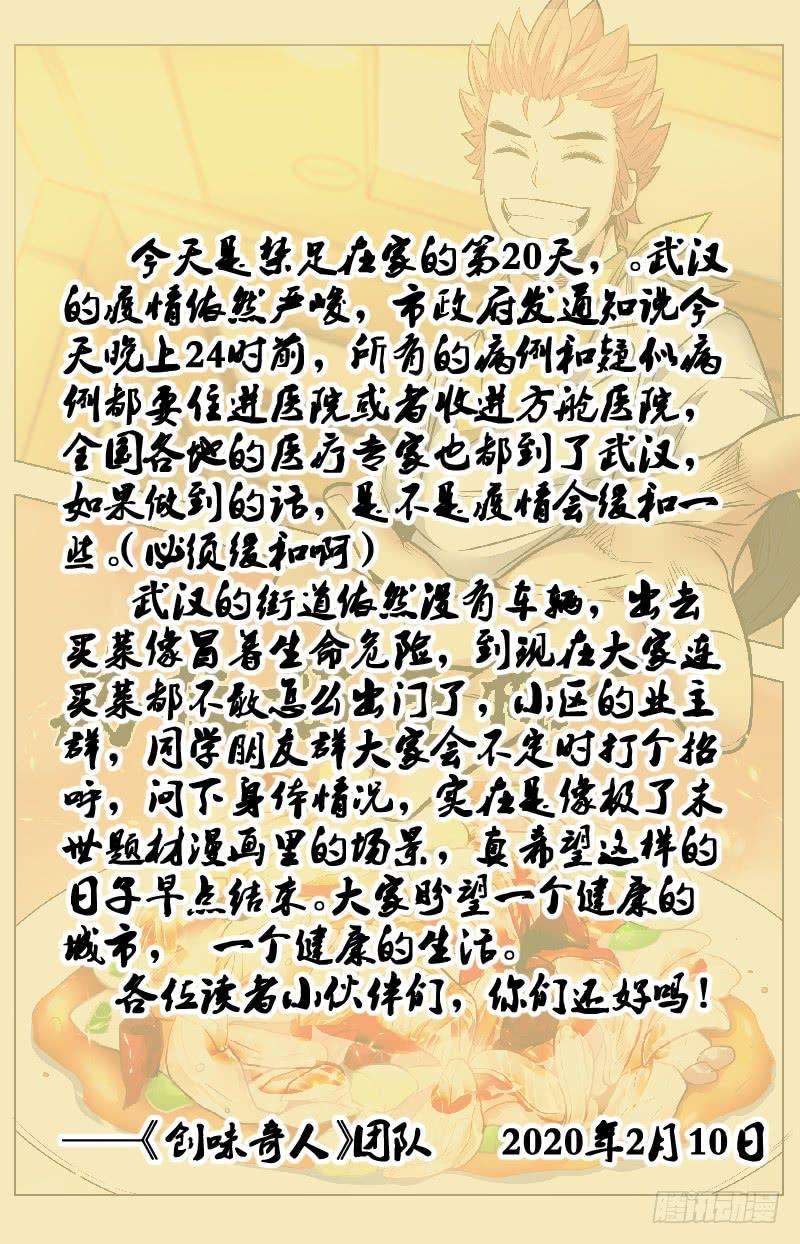 今天是禁足在家的第20天，。武汉
的疫情依然严峻，市政府发通知说今
天晚上24时前，所有的病例和疑似病
例都要住进医院或者收进方舱医院，
全国各地的医疗专家也都到了武汉，
如果做到的话，是不是疫情会缓和一
些。（必须缓和啊）
武汉的街道依然没有车辆，出去
买菜像冒着生命危险，到现在大家连
买菜都不敢怎么出门了，小区的业主
群，同学朋友群大家会不定时打个招
呼，问下身体情况，实在是像极了末
世题材漫画里的场景，真希望这样的
日子早点结束。大家盼望一个健康的
城市， 一个健康的生活。
各位读者小伙伴们，你们还好吗！
——《创味奇人》团队 2020年2月10日
腾讯动漫